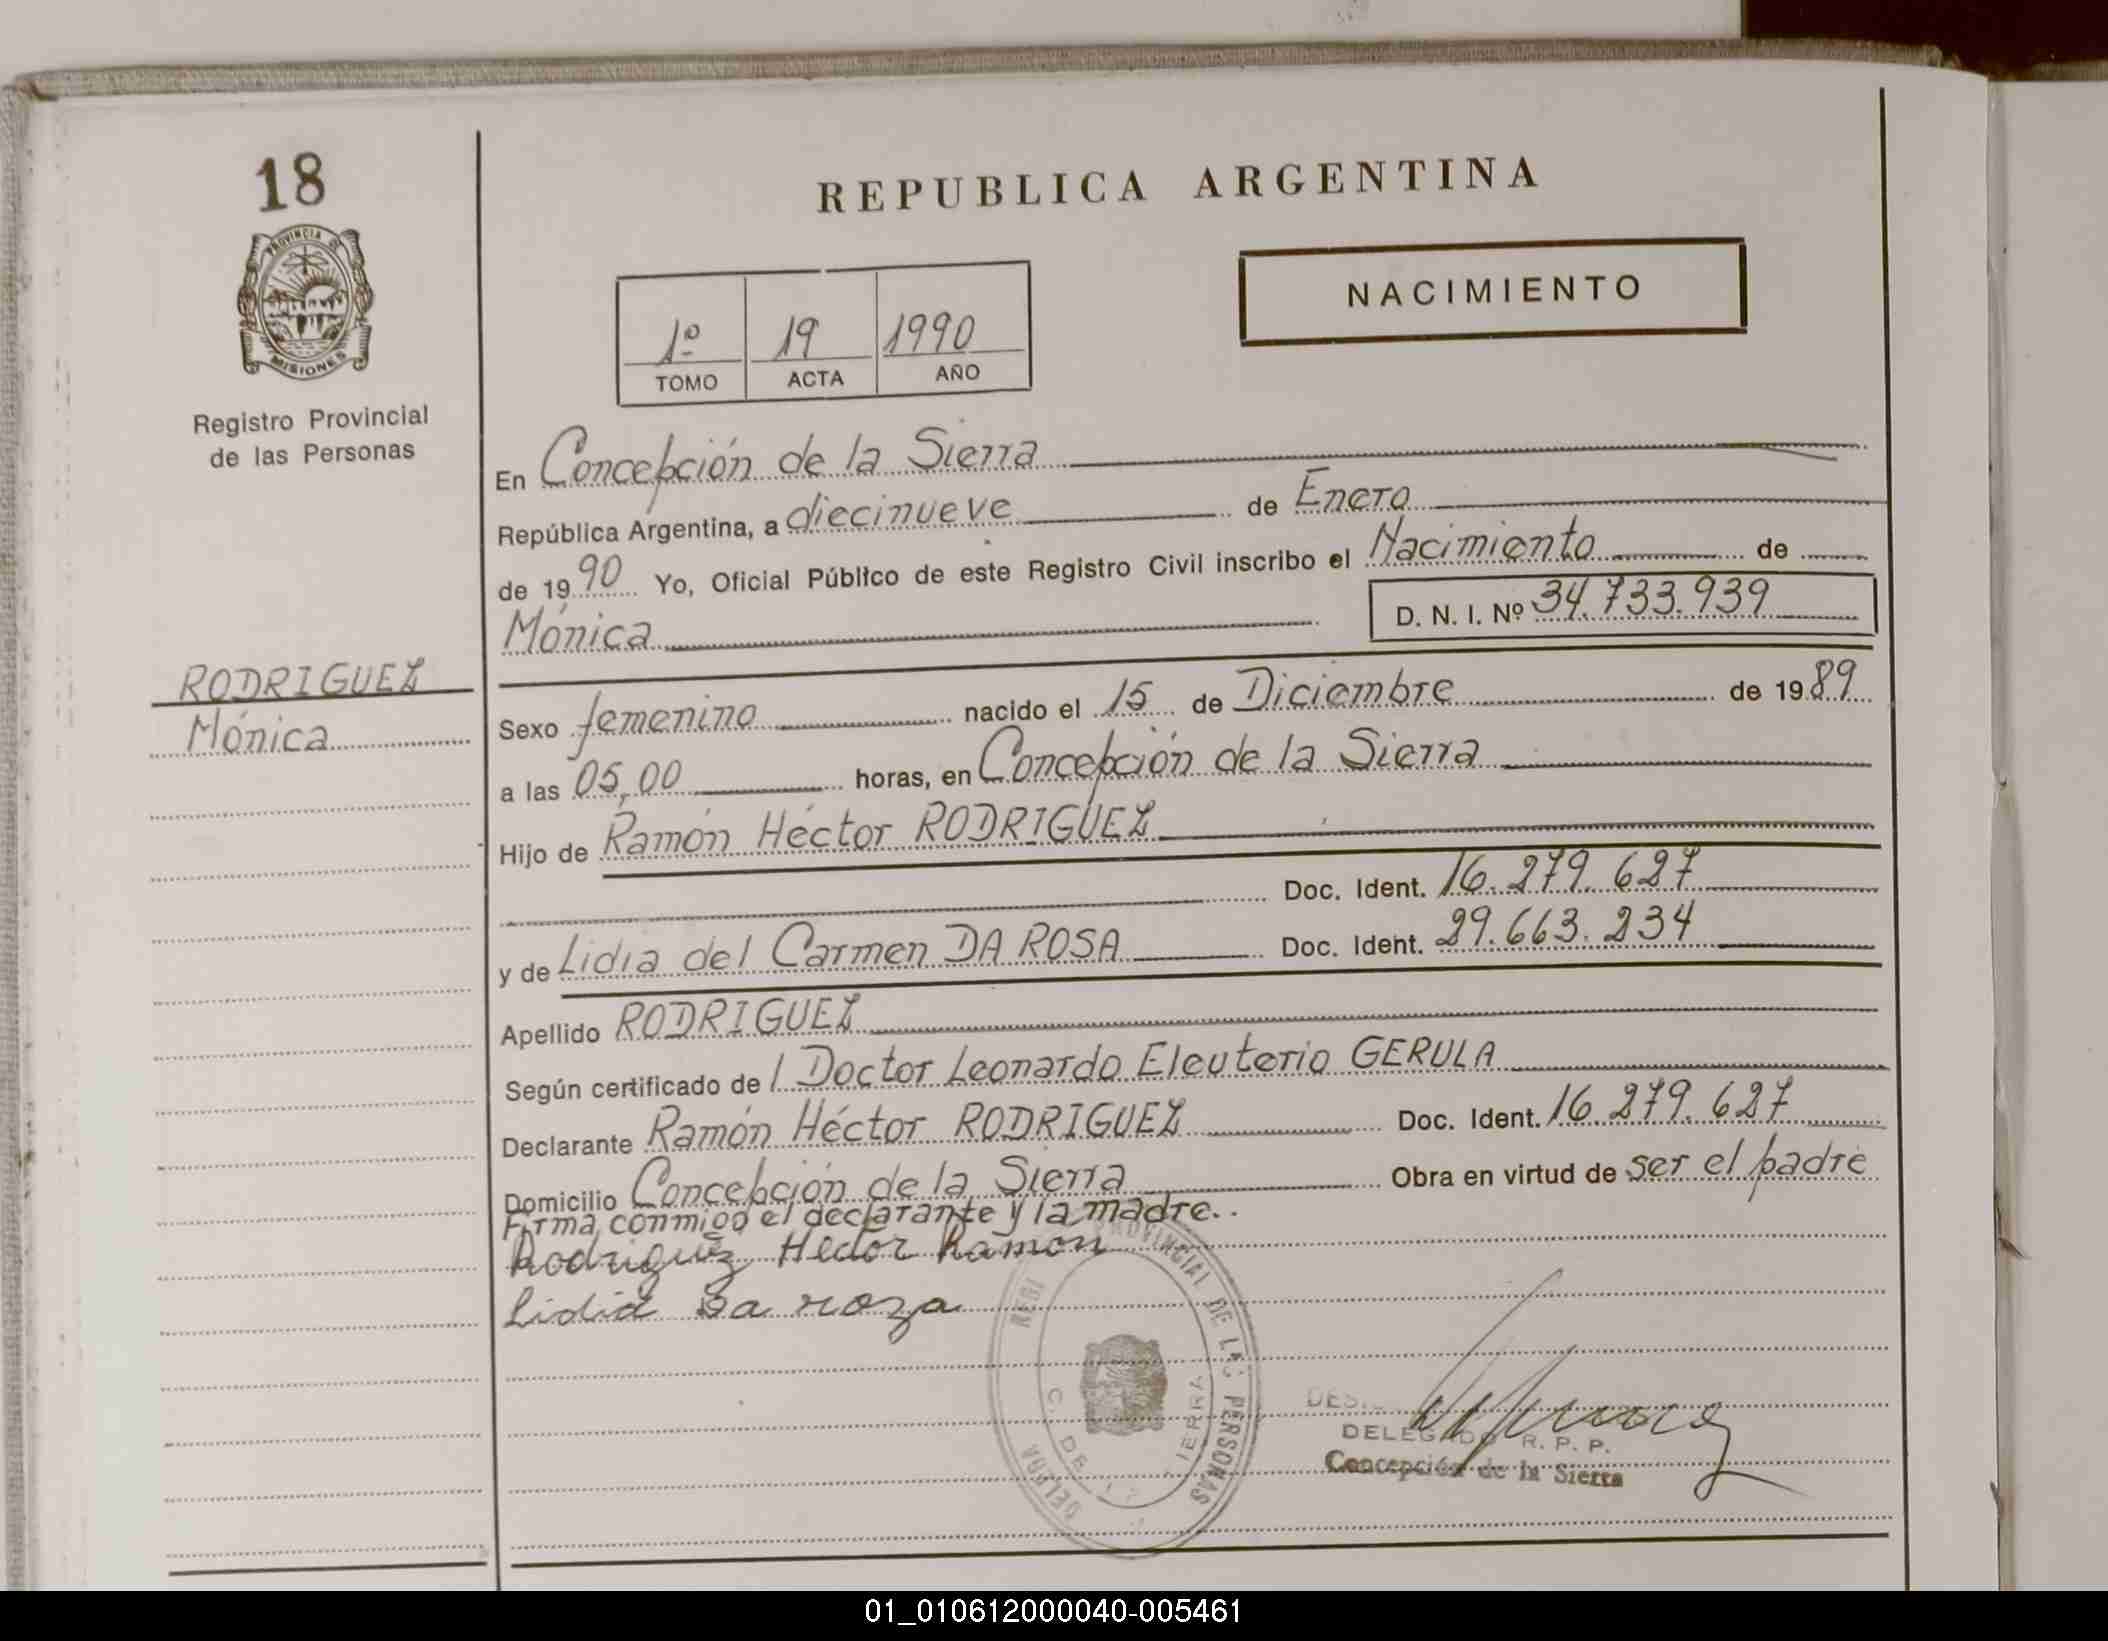 18
PROVINCIA DE
MISIONES
Registro Provincial
de las Personas
RODRIGUEZ
Mónica
REPUBLICA ARGENTINA
NACIMIENTO
1º 19 1990
TOMO ACTA AÑO
En Concepción de la Sierra
República Argentina, a diecinueve de Enero
de 1990 Yo, Oficial Público de este Registro Civil inscribo el Nacimiento de
Mónica D. N. I. Nº 34.733.939
Sexo femenino nacido el 15 de Diciembre de 1989
a las 05,00 horas, en Concepción de la Sierra
Hijo de Ramón Héctor RODRIGUEZ
Doc. Ident. 16.279.627
y de Lidia del Carmen DA ROSA Doc. Ident. 29.663.234
Apellido RODRIGUEZ
Según certificado del Doctor Leonardo Eleuterio GERULA
Declarante Ramón Héctor RODRIGUEZ Doc. Ident. 16.279.627
Domicilio Concepción de la Sierra Obra en virtud de ser el padre
Firma conmigo el declarante y la madre..
Rodriguez Hector Ramon
Lidia Da roza
PROVINCIAL DE LAS PERSONAS
DELEGADO R. P. P.
Concepción de la Sierra
01_010612000040-005461